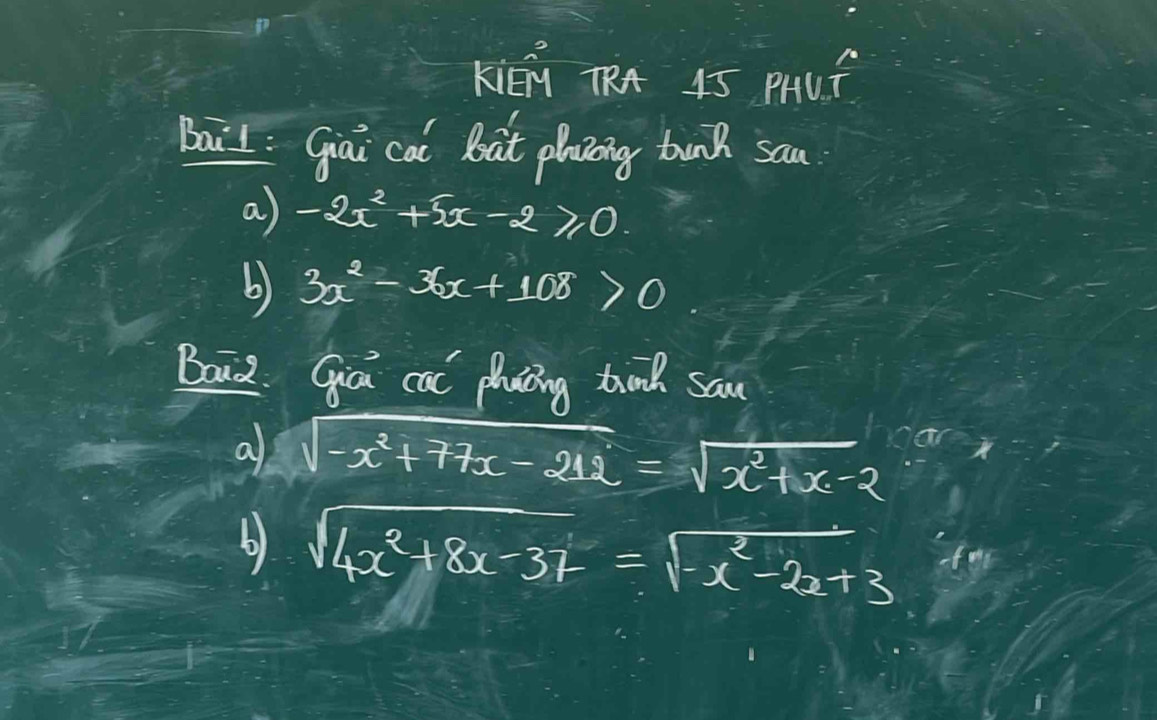 KIỂM TRA 15 PHÚT
Bài 1: Giải các bất phương trình sau
a) -2x² + 5x - 2 ⩾ 0.
b) 3x² - 36x + 108 > 0.
Bài 2: Giải các phương trình sau
a) √(-x² + 77x - 212) = √(x² + x - 2)
b) √(4x² + 8x - 37) = √(-x² - 2x + 3)